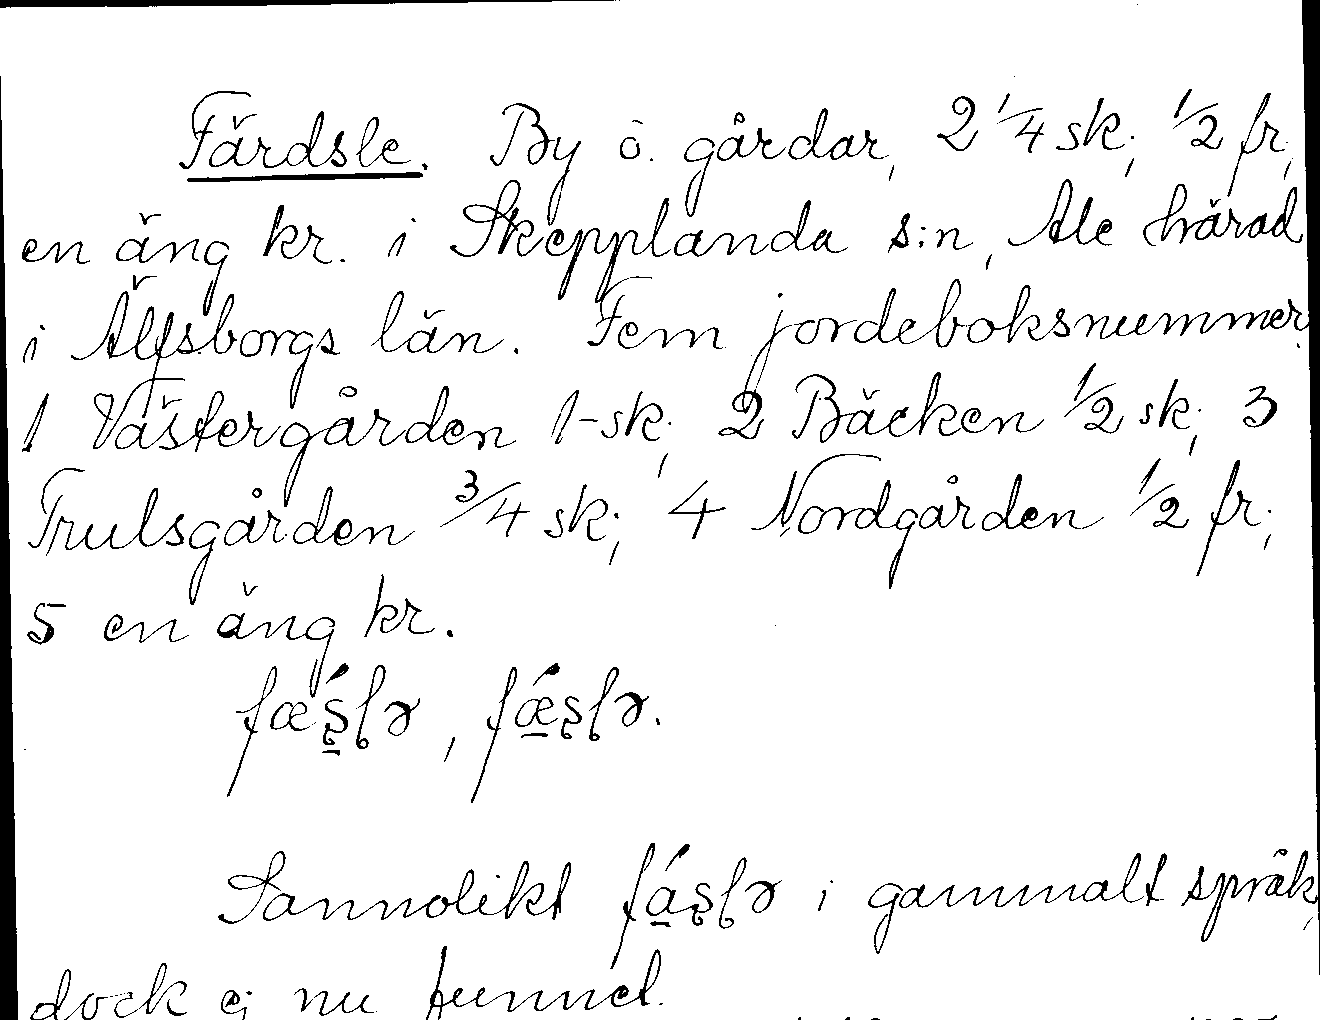 Färdsle. By o. gårdar, 2 1/4 sk; 1/2 fr,
en äng kr. i Skepplanda s:n, Ale härad
i Älfsborgs län. Fem jordeboksnummer.
1 Västergården 1-sk; 2 Bäcken 1/2 sk; 3
Trulsgården 3/4 sk; 4 Nordgården 1/2 fr;
5 en äng kr.
Sannolikt i gammalt språk,
dock ej nu funnet.